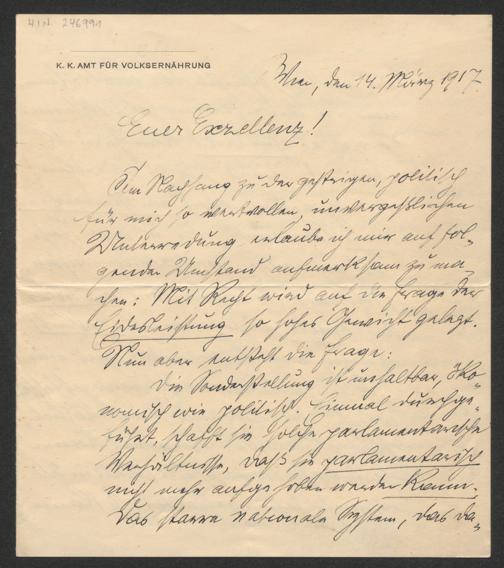 H.I.N. 246991
K. K. AMT FÜR VOLKSERNÄHRUNG
Wien, den 14. März 1917.
Euer Exzellenz!
Im Nachhang zu der gestrigen, politisch
für mich so wertvollen, unvergeßlichen
Unterredung erlaube ich mir auf fol-
genden Umstand aufmerksam zu ma-
chen: Mit Recht wird auf die Frage der
Eidesleistung so hohes Gewicht gelegt.
Nun aber entsteht die Frage:
Die Sonderstellung ist unhaltbar, öko-
nomisch wie politisch. Einmal durchge-
führt, schafft sie solche parlamentarische
Verhältnisse, daß sie parlamentarisch
nicht mehr aufgehoben werden kann.
Das starre nationale System, das da-